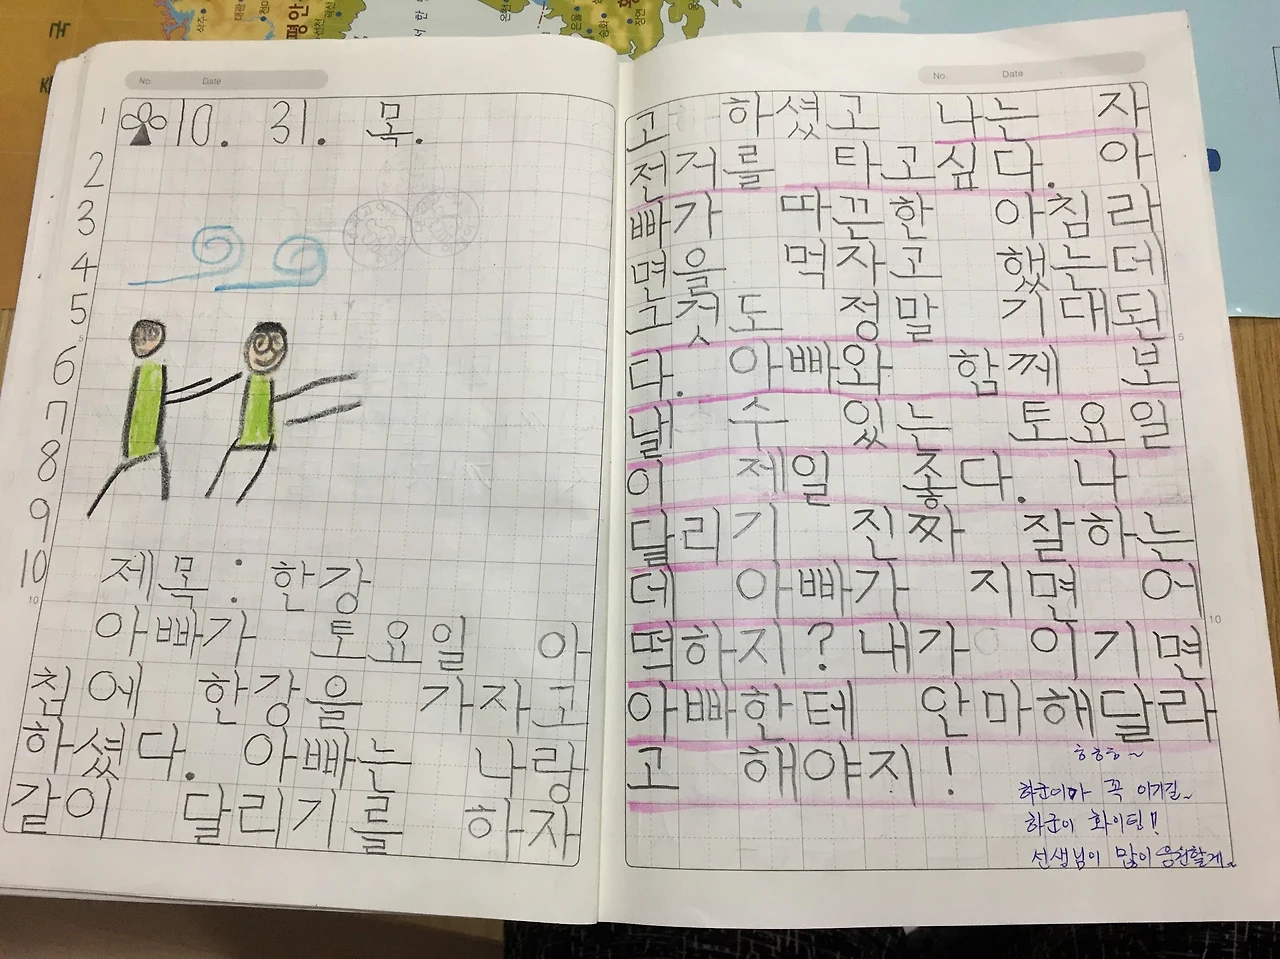 국
평안
No. Date
1 10. 31. 목.
2
3
4
5
6
7
8
9
10
제목: 한강
10
아빠가 토요일 아
침에 한강을 가자고
하셨다. 아빠는 나랑
같이 달리기를 하자
No. Date
고 하셨고 나는 자
전거를 타고싶다. 아
빠가 따끈한 아침라
면을 먹자고 했는데
그것도 정말 기대된
5
다. 아빠와 함께 보
낼 수 있는 토요일
이 제일 좋다. 나
달리기 진짜 잘하는
데 아빠가 지면 어
10
떡하지? 내가 이기면
아빠한테 안마해달라
고 해야지!
ㅎㅎㅎ~
꼭 이기길~
하군이 화이팅!!
선생님이 많이 응원할게~